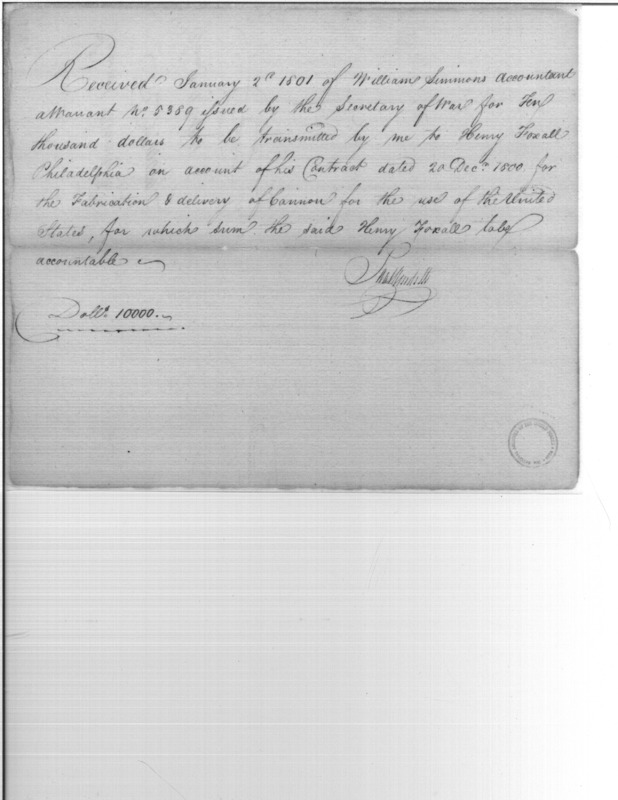 Received January 2d 1801 of William Simmons accountant
a Warrant No. 5389 issued by the Secretary of War for Ten
thousand dollars to be transmitted by me to Henry Foxall
Philadelphia on account of his Contract dated 20 Decr. 1800 for
the Fabrication & delivery of Cannon for the use of the United
States, for which sum the said Henry Foxall to be
accountable
Dolls. 10000.